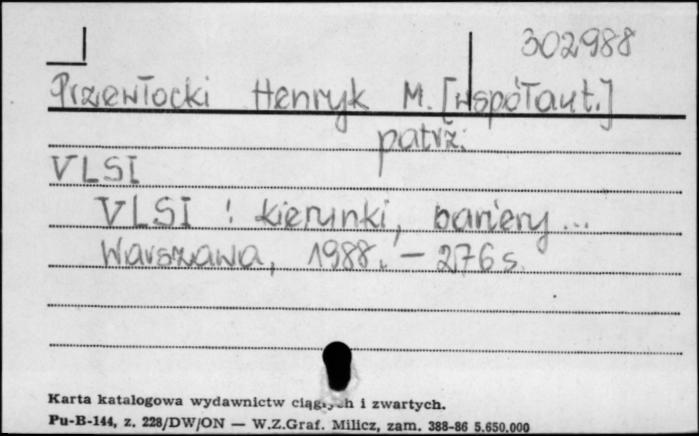 302988
Przewłocki Henryk M. [współaut.]
patrz:
VLSI
VLSI : kierunki, bariery...
Warszawa, 1988. - 276 s.
Karta katalogowa wydawnictw ciągłych i zwartych.
Pu-B-144, z. 228/DW/ON — W.Z.Graf. Milicz, zam. 388-86 5.650.000